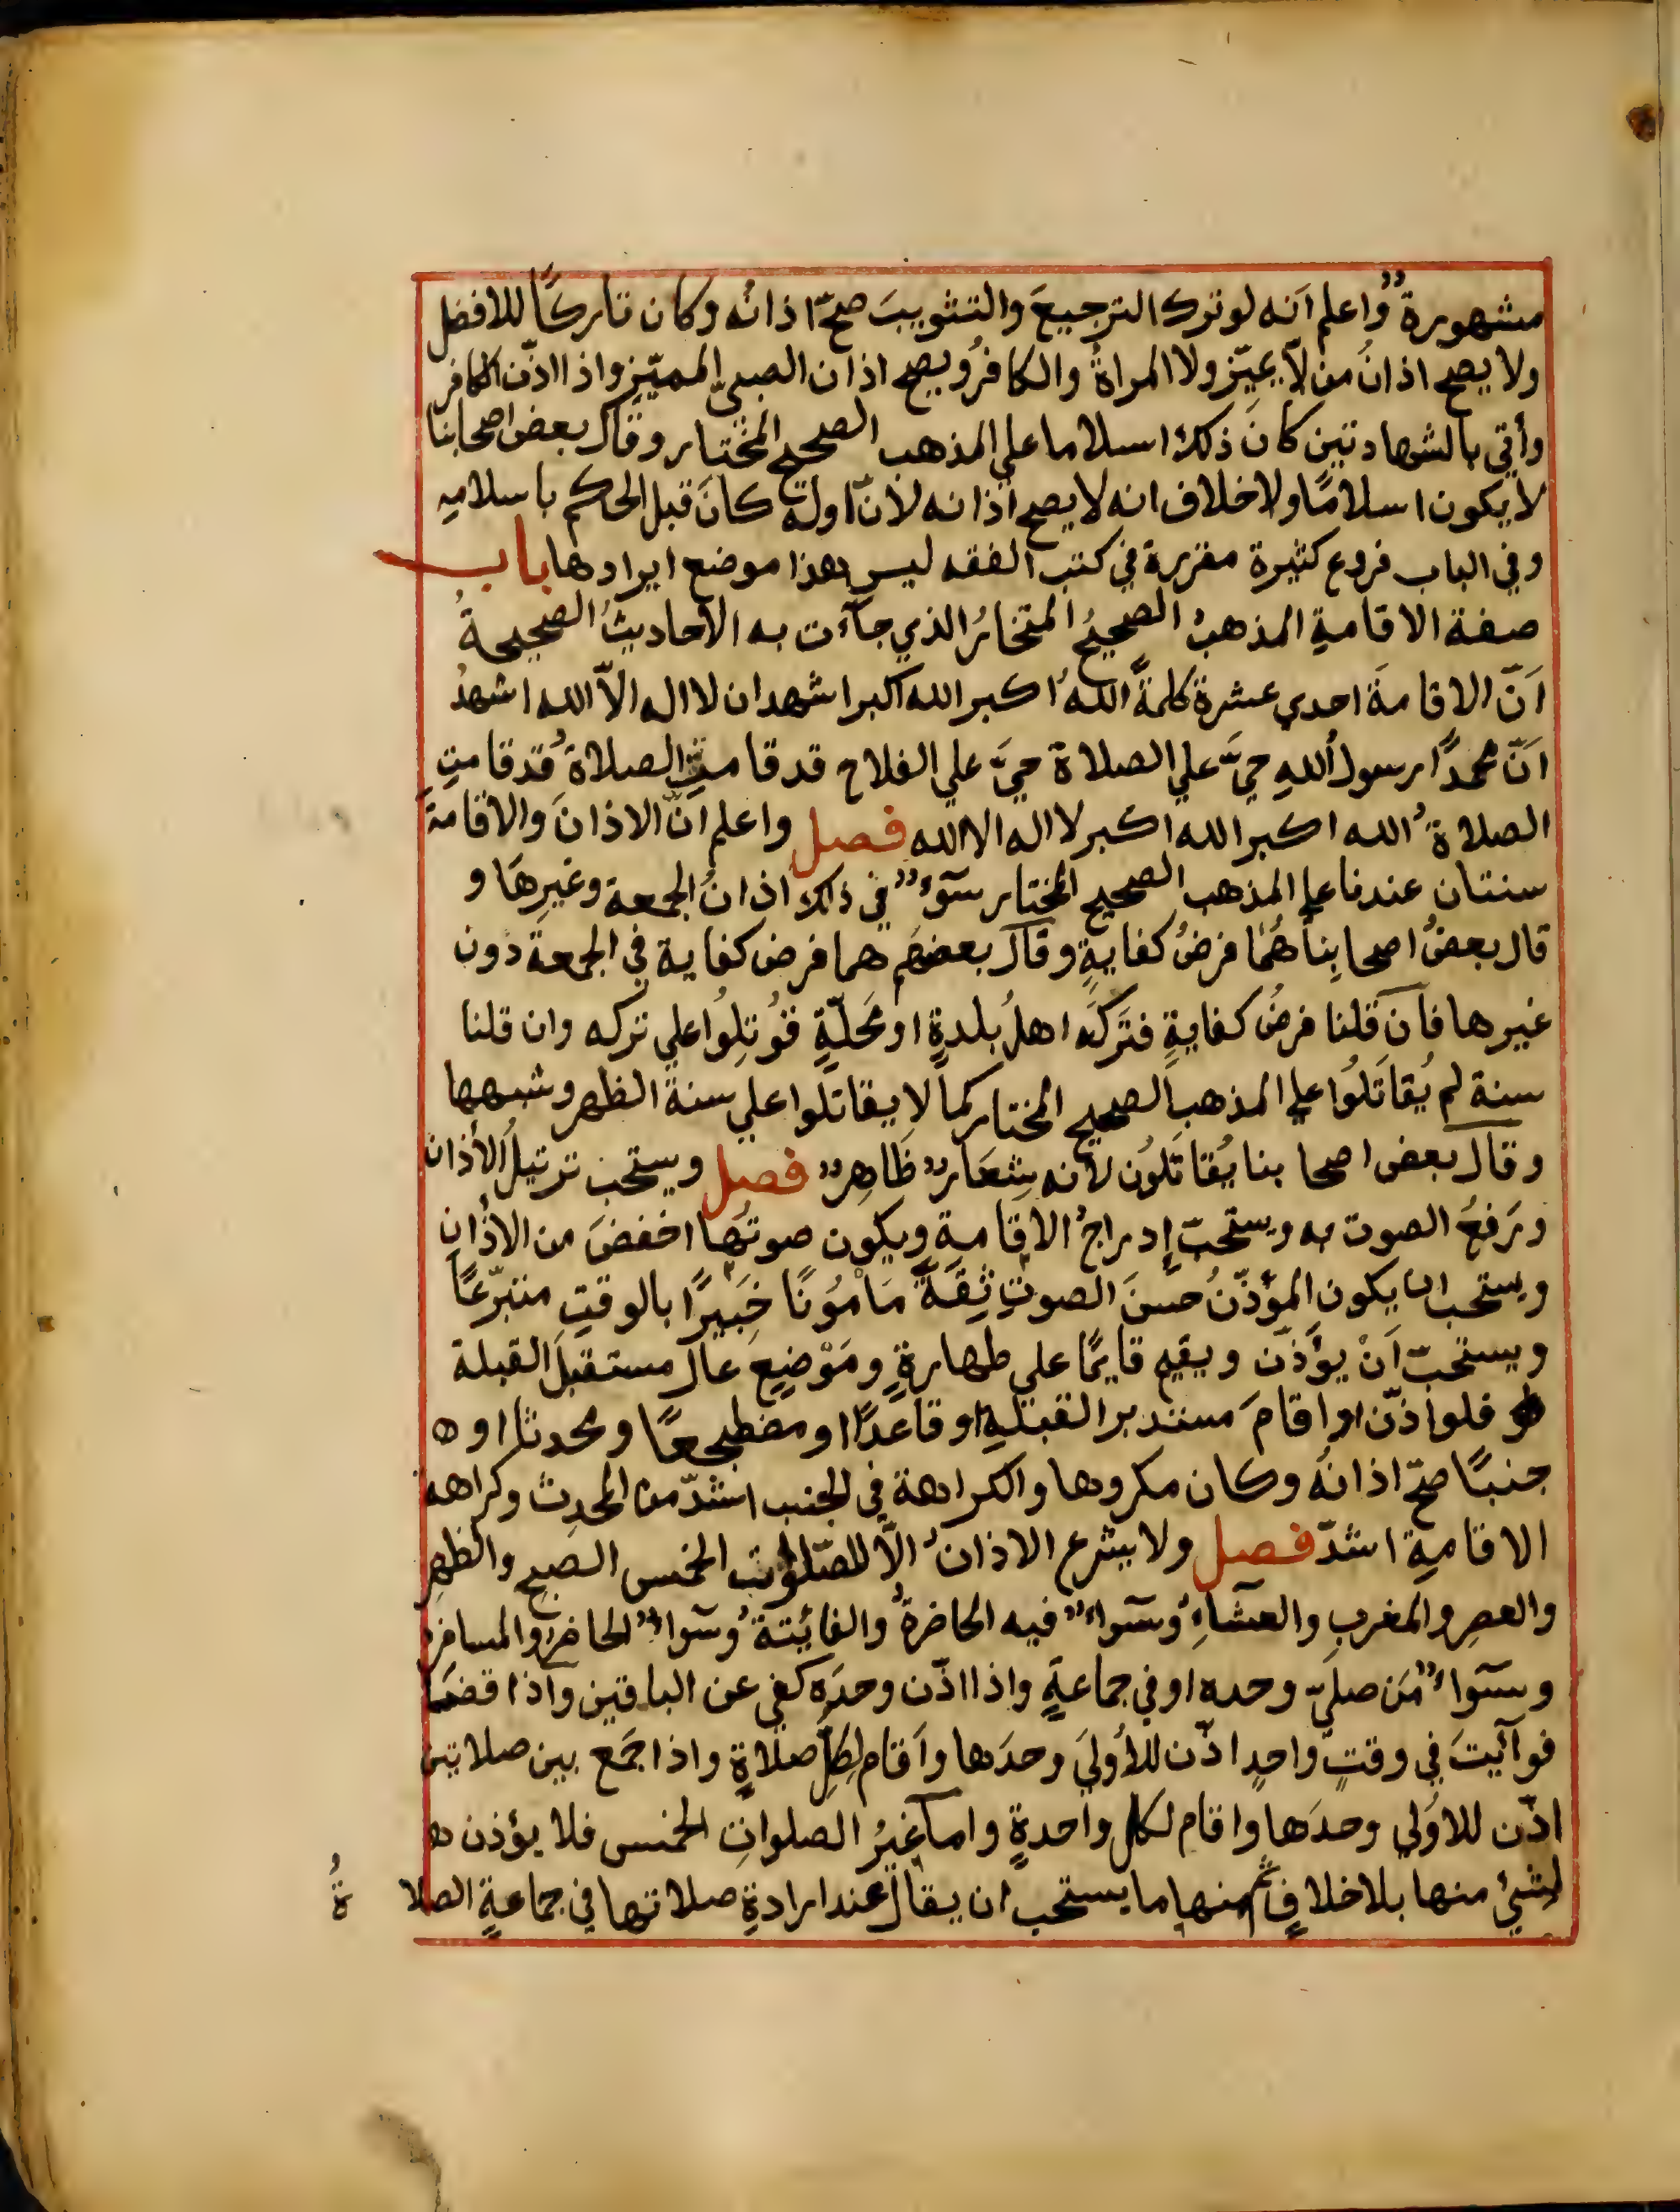 مشهورةٌ واعلم اَنه لو ترك الترجيعَ والتثويبَ صحّ اذانُه وكان تاركًا للافضل
ولا يصح اذانُ من لاّ يميّز ولا المراةُ والكافرُ ويصح اذان الصبيّ المميّز واذا اذّن الكافر
وأتي بالشهادتين كانَ ذلك اسلاما علي المذهب الصحيح المختار وقال بعض اصحابنا
لا يكون اسلامًا ولا خلاف انه لا يصح اذانه لانّ اوله كانَ قبل الحكم باسلامِه
وفي الباب فروع كثيرة مقررة في كتب الفقه ليس هذا موضع ايرادها باب
صفة الاقامةِ المذهبُ الصحيحُ المختارُ الذي جآءت به الاحاديثُ الصحيحةُ
اَنّ الاقامةَ احدي عشرة كلمةً اللهُ اكبر الله اكبر اشهد ان لا اله الاّ الله اشهدُ
اَنّ محمدًا رسول اللهِ حيَّ علي الصلاة حيَّ علي الفلاح قد قامتِ الصلاةُ قد قامتِ
الصلاةُ الله اكبر الله اكبر لا اله الا الله فصل واعلم انّ الاذانَ والاقامةَ
سنتان عندنا علي المذهب الصحيح المختار سَوَآءٌ في ذلك اذانُ الجمعة وغيرِهَا و
قال بعضُ اصحابِنا هُمَا فرضُ كفايةٍ وقال بعضهم هما فرض كفاية في الجمعة دون
غيرها فان قلنا فرضُ كفايةٍ فتَركَه اهلُ بلدةٍ او مَحَلّةٍ قوُتِلوُا علي تركه وان قلنا
سنة لم يُقاتَلوُا علي المذهب الصحيح المختار كما لا يقاتلوا علي سنة الظهر وشبهها
وقال بعض اصحا بنا يُقاتَلوُن لانه شِعَارٌ ظَاهِرٌ فصل ويستحب ترتيلُ الاذان
ورَفعُ الصوت به ويستحبّ إدراجُ الاقامةِ ويكون صوتُها اخفضَ من الاذانِ
ويستحب ان يكون المؤذّنُ حسنَ الصوتِ ثِقَةً مَامْوُنًا خَبَيرًا بالوقتِ متبرّعًا
ويستحبّ اَنْ يؤذّن ويقيم قايمًا علي طهارةٍ ومَوْضِعٍ عال مستقبلَ القبلة
فلو اذّن او اقامَ مستدبر القبلةِ او قاعدًا او مضطجعًا ومحدثا او ه
جنبًا صحّ اذانُهُ وكان مكروها والكراهة في الجنب اشدّ من المحدِث وكراهة
الاقامةِ اشدّ فصل ولا يشرع الاذانُ الاّ للصّلوات الخمس الصبح والظهرِ
والعصرِ والمغربِ والعشآءِ وسَوآءٌ فيه الحاضرةُ والفائتةُ وسَوآءٌ الحاضرُ والمسافرُ
وسوآءٌ مَن صلّيَ وحده او في جماعةٍ واذا اذّن وحدَه كفي عن الباقين واذا قضيَ
فوآئيتَ في وقتٍ واحدٍ اذّن للأُوليَ وحدَها واَقام لِكلِّ صلاةٍ واذا جَمع بين صلاتين
اذّن للاوُلي وحدَها واقام لكل واحدةٍ واما غيرُ الصلواتِ الخمس فلا يؤذن ه
لشيُ منها بلا خلافٍ ثم منها ما يستحب ان يقال عند ارادةِ صلاتها في جماعةٍ الصلاةُ